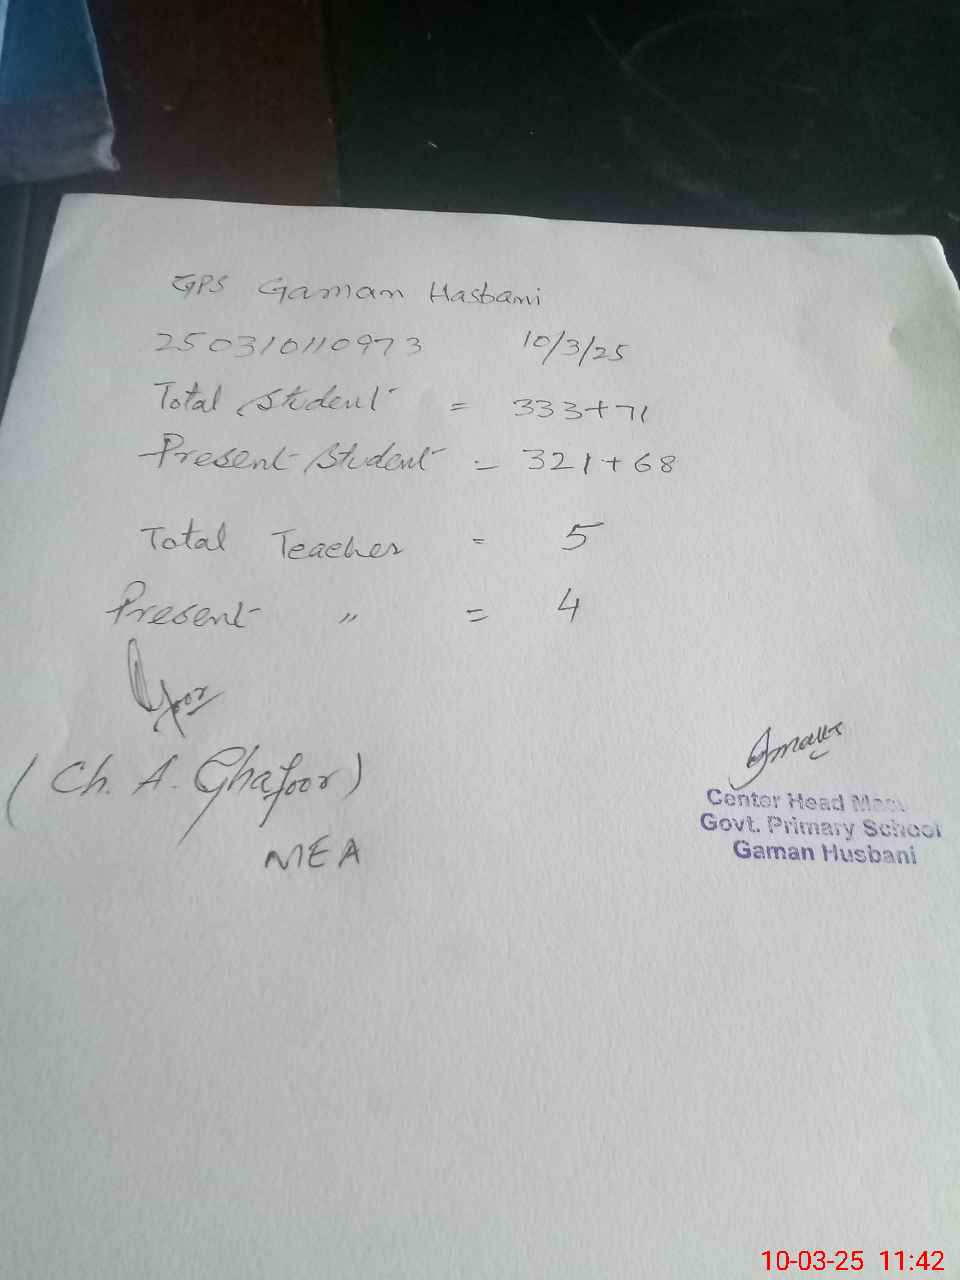 GPS Gaman Hasbani
250310110973 10/3/25
Total Student = 333+71
Present Student = 321+68
Total Teacher = 5
Present " = 4
(Ch. A. Ghafoor)
MEA
Center Head
Govt. Primary School
Gaman Husbani
10-03-25 11:42